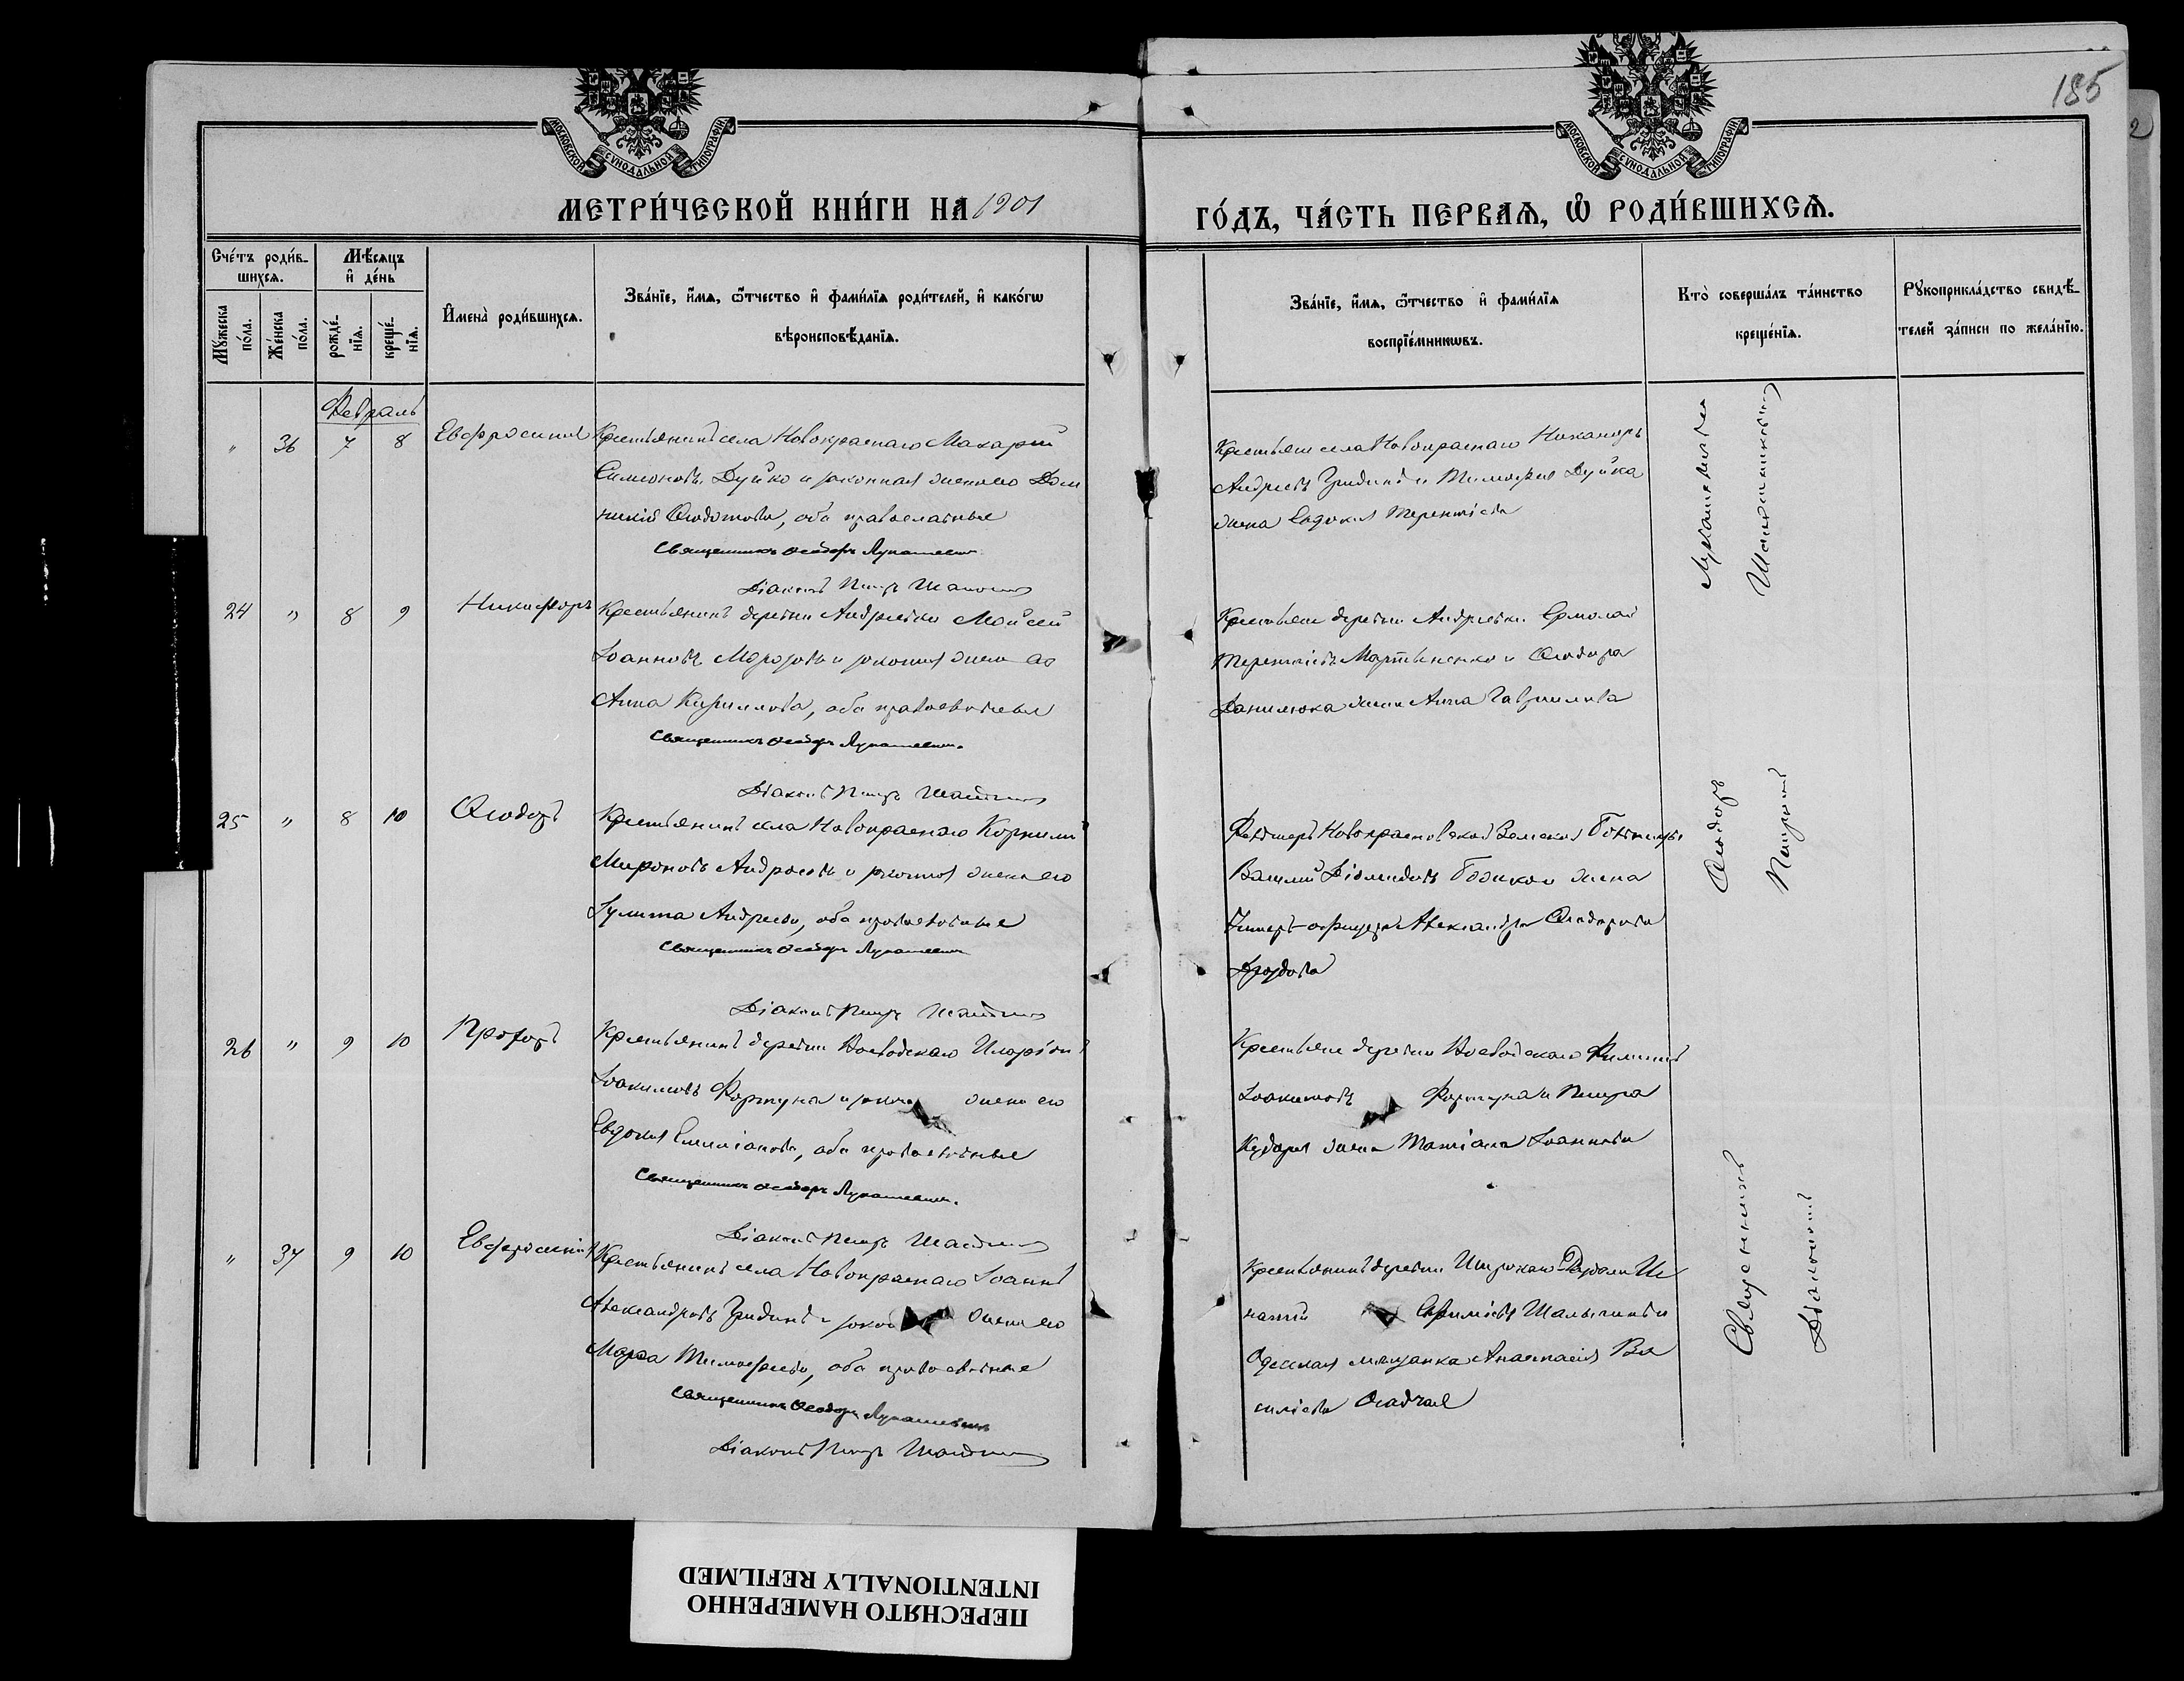 185
2
МОСКОВСКОЙ СѴНОДАЛЬНОЙ ТИПОГРАФІИ
МОСКОВСКОЙ СѴНОДАЛЬНОЙ ТИПОГРАФІИ
МЕТРИ́ЧЕСКОЙ КНИ́ГИ НА 1901
ГО́ДЪ, ЧА́СТЬ ПЕРВАЯ, Ѡ РОДИ́ВШИХСЯ.
Сче́тъ роди́в-
шихся.
Мѣсяцъ
и де́нь
Му́жеска по́ла.
Же́нска по́ла.
рожде́-
нія.
креще́-
нія.
Имена̀ роди́вшихся.
Зва́ніе, и́мя, ѻ҆́тчество и фами́лія роди́телей, и како́гѡ
вѣроисповѣ́данія.
Зва́ніе, и́мя, ѻ҆́тчество и фами́лія
воспріе́мникѡвъ.
Кто̀ соверша́лъ та́инство
креще́нія.
Рꙋкоприкла́дство свидѣ́-
телей за́писи по жела́нію.
Февраль
" 36 7 8 Евфросинія
Крестьянинъ села Новокраснаго Макарій
Симеоновъ Дуйко и законная жена его Дом
никія Ѳеодотова, оба православные
Священникъ Ѳеодоръ Лукашевич
Діаконъ Петръ
Крестьяне села Новокраснаго Никаноръ
Андреевъ Гридинъ и Тимофея Дуйка
жена Евдокія Терентіева
24 " 8 9 Никифоръ
Крестьянинъ деревни Андреевки Моисей
Іоанновъ Морозовъ и законная жена его
Анна Кириллова, оба православные
Священникъ Ѳеодоръ Лукашевич.
Діаконъ Петръ
Крестьяне деревни Андреевки Ермолай
Терентіевъ Мартыненко и Ѳеодора
Данилюка жена Анна Гавриилова
25 " 8 10 Ѳеодоръ
Крестьянинъ села Новокраснаго Корнилій
Мироновъ и законная жена его
Іулитта Андреева, оба православные
Священникъ Ѳеодоръ Лукашевич
Діаконъ Петръ
Фельдшеръ Новокрасновской Земской Больницы
Василій Діомидовъ и жена
Унтеръ-офицера Александра Ѳеодорова
Дроздова
26 " 9 10 Прохоръ
Крестьянинъ деревни Воеводскаго Иларіонъ
Іоакимовъ Фортуна и жена его
Евдокія Емиліанова, оба православные
Священникъ Ѳеодоръ Лукашевич.
Діаконъ Петръ
Крестьяне деревни Воеводскаго Филиппъ
Іоакимовъ Фортуна и Петра
жена Татіана Іоаннова
" 37 9 10 Евфросинія
Крестьянинъ села Новокраснаго Іоаннъ
Александровъ Гридинъ и жена его
Марѳа Тимофеева, оба православные
Священникъ Ѳеодоръ Лукашевич
Діаконъ Петръ
Крестьянинъ деревни
Ефиміевъ и
Одесская мѣщанка Анастасія Ва
силіева Осадчая
Священникъ Ѳеодоръ Лукашевичъ
Діаконъ Петръ
ПЕРЕСНЯТО НАМЕРЕННО
INTENTIONALLY REFILMED